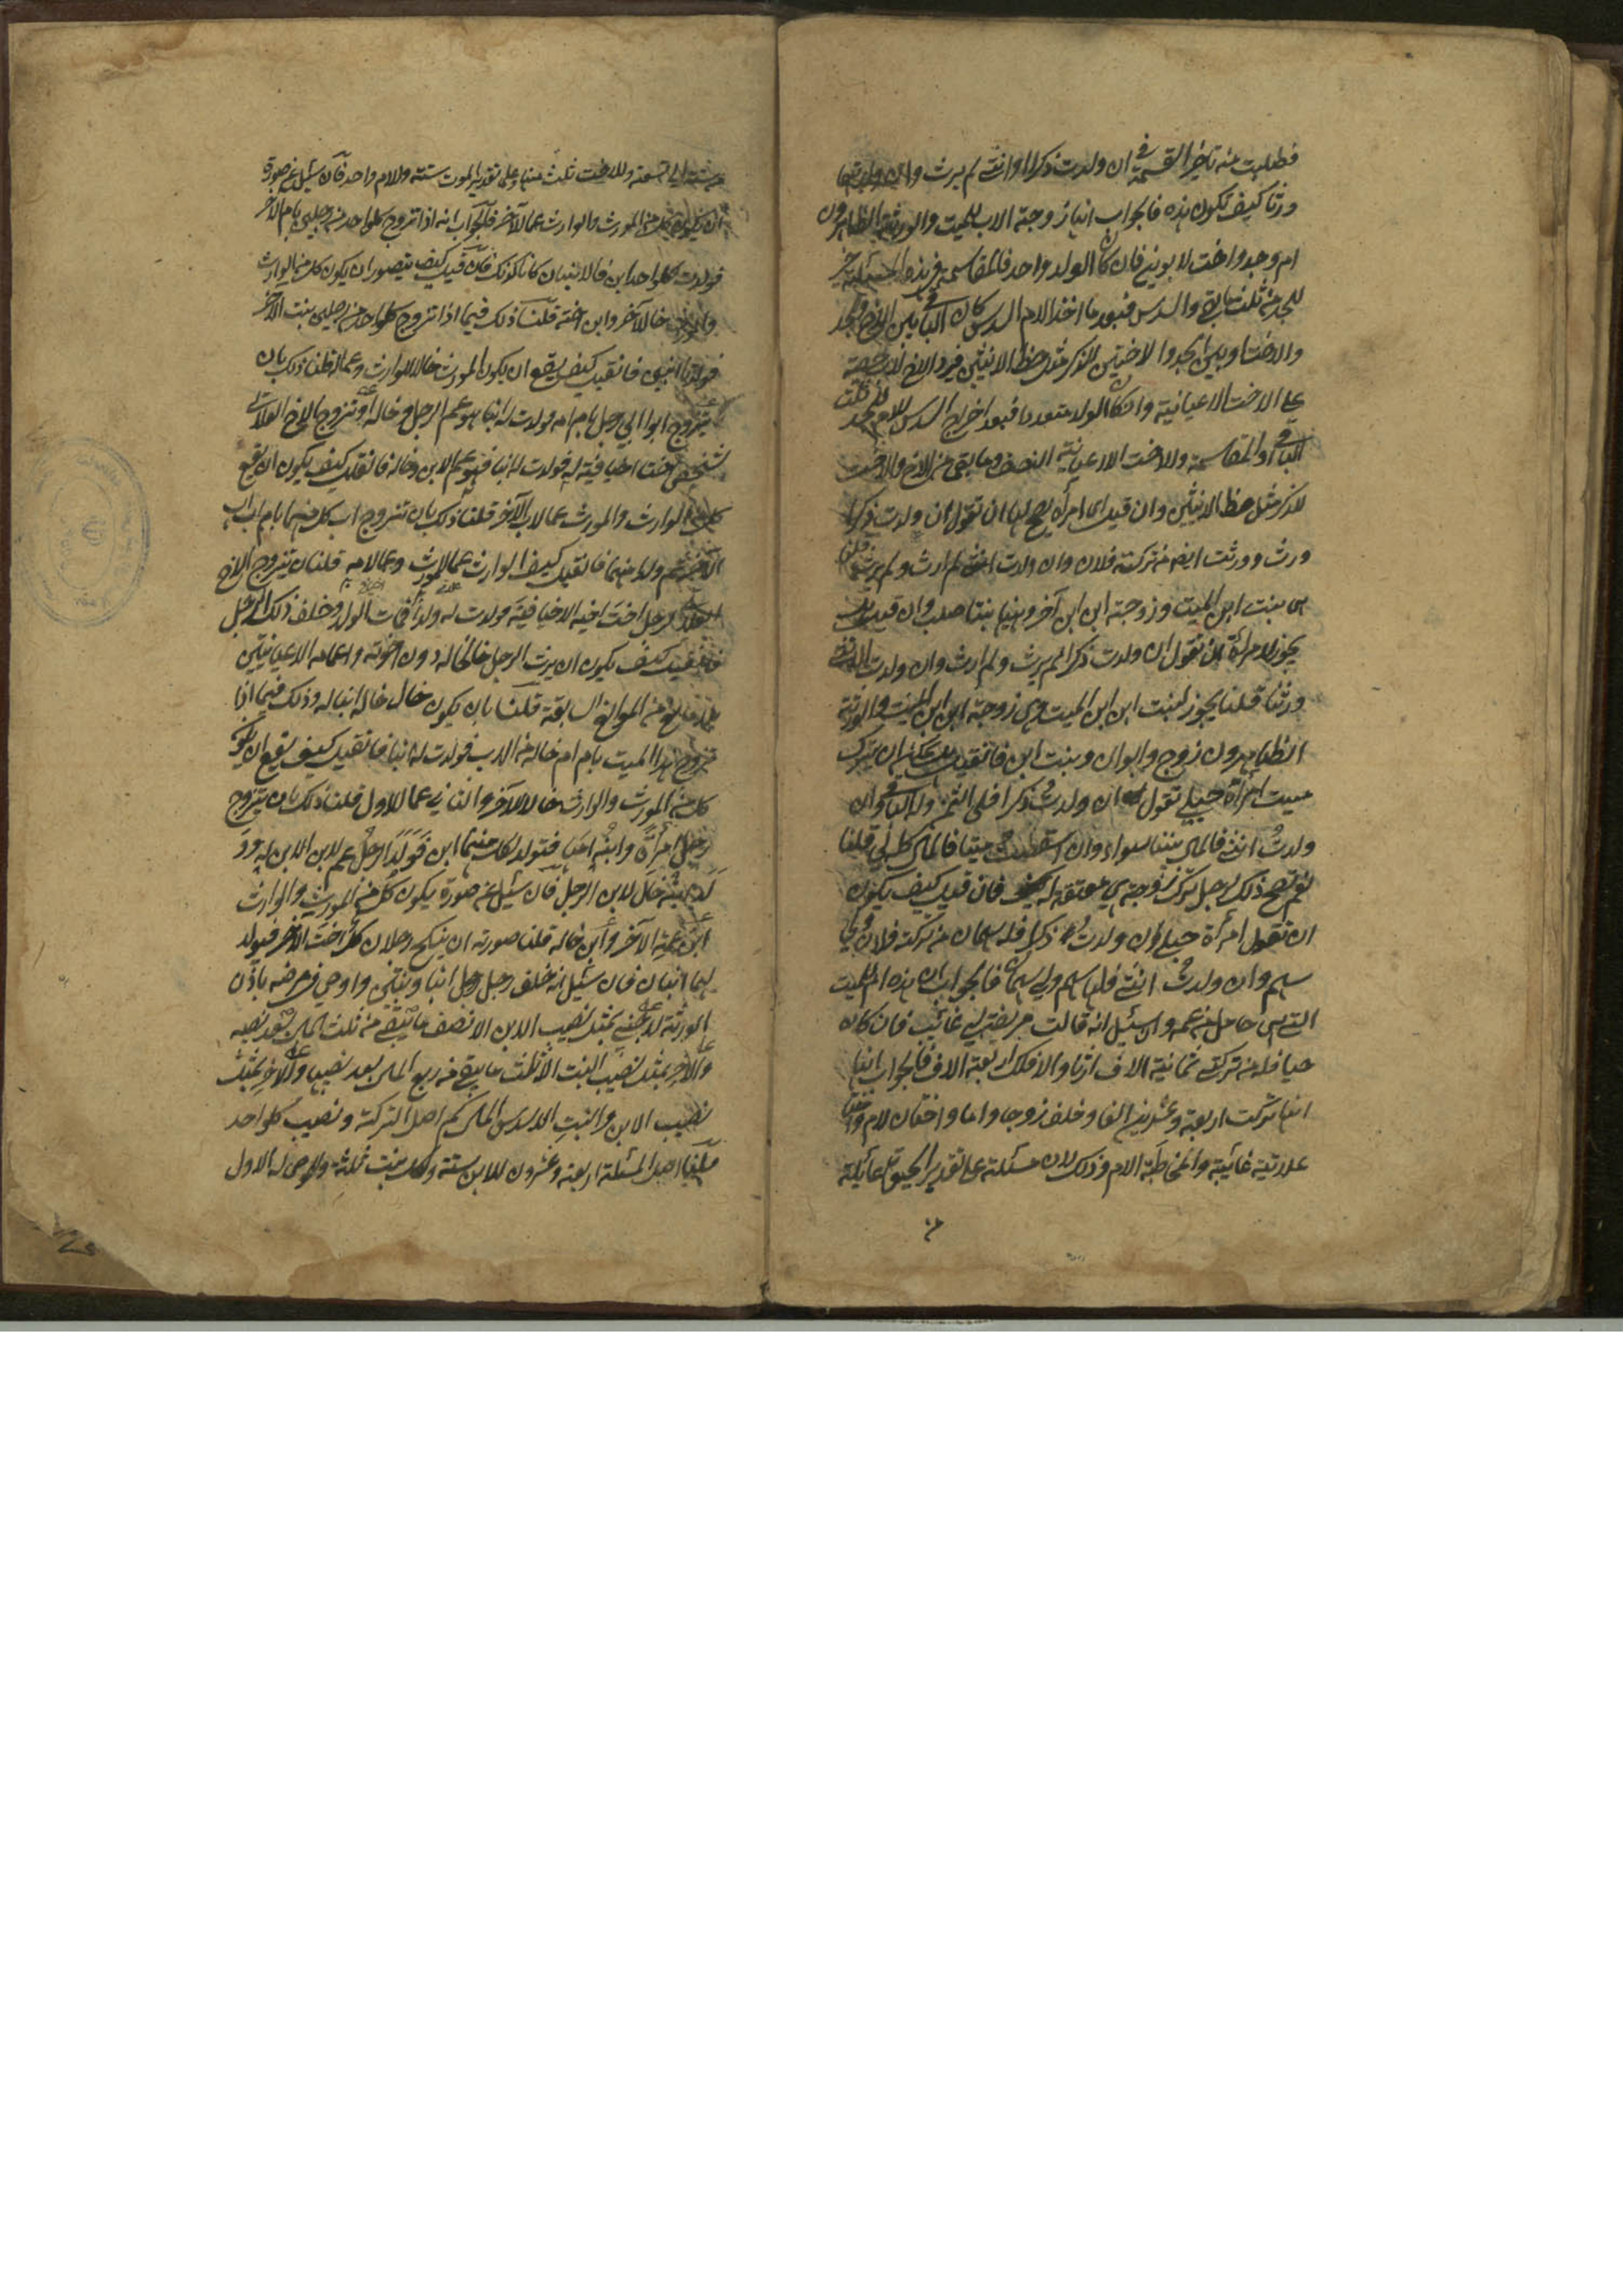 فطلبت منه تاخير القسمة ان ولدت ذكرا او انثى لم يرث وان ولدتهما
ورثا كيف تكون هذه فالجواب انها زوجة الاب للميت والورثة الظاهرون
ام وجد واخت لابوين فان كان الولد واحد فالمقاسمة في هذه المسئلة خير
للجد من ثلث الباقي والسدس فبعد ما اخذ الام السدس كان الباقي بين الاخ والجد
والاخت او بين الجد والاختين للذكر مثل حظ الانثيين فيرد الاخ لاب حصته
على الاخت الاعيانية وان كان الولد متعددا فبعد اخراج السدس للام للجد ثلث
الباقي او المقاسمة وللاخت الاعيانية النصف وما بقى بين الاخ والاخت
للذكر مثل حظ الانثيين وان قيل اى امرأة يصح لها ان تقول ان ولدت ذكرا
ورث وورثت ايضا من تركة فلان وان ولدت انثى لم ارث ولم يرث قلنا
هى بنت ابن الميت وزوجة ابن ابن آخر وبينهما بنتا صلب وان قيل هل
يجوز لامرأة ان تقول ان ولدت ذكرا لم يرث ولم ارث وان ولدت انثى
ورثنا قلنا يجوز لبنت ابن ابن الميت وهى زوجة ابن ابن الميت والورثة
الظاهرون زوج وابوان وبنت ابن فان قيل هل يمكن ان يترك
ميت امرأة حبلى تقول ان ولدت ذكرا فلى الثمن وله الباقى وان
ولدت انثى فالمال بيننا سواء وان اسقطت ميتا فالمال كله لى قلنا
نعم يصح ذلك لرجل ترك زوجة هى معتقة له فان قيل كيف يكون
ان تقول امرأة حبلى ان ولدت ذكرا فله سهمان من تركة فلان ولى
سهم وان ولدت انثى فلها سهم ولى سهمان فالجواب ان هذه ام الميت
التى هى حامل من عمه وان سئل انه قالت مريضة لى غائب فان كان
حيا فله من تركتى ثمانية الاف ارثا والا فلك اربعة الاف فالجواب انها
انما تركت اربعة وعشرين الفا وخلف زوجا واما واختان لام واختا
علاتية غائبة والمخاطبة الام وذلك لان مسئلة على تقدير الحيوة عائلة
من ستة الى تسعة وللاخت ثلث منها وعلى تقدير الموت ستة وللام واحد فان سئل عن صورة
ان يكون كل من المورث والوارث عما للآخر فالجواب انه اذا تزوج كل واحد من رجلين بام الآخر
فولدت لكل واحد ابن فالابنان كانا كذلك فان قيل كيف يتصور ان يكون كل من الوارث
والمورث خالا للآخر وابن اخته قلنا ذلك فيما اذا تزوج كل واحد من رجلين بنت الآخر
فولدتا ابنين فان قيل كيف يقع ان يكون المورث خالا للوارث وعما له قلنا ذلك بان
يتزوج ابو ابى رجل بام امه فولدت له ابنا هو عم الرجل وخاله او تزوج الاخ العلاتى
لشخص اخت اخيافية له فولدت له ابنا فهو عم الابن وخاله فان قيل كيف يكون ان يقع
كل من الوارث والمورث عما لاب الآخر قلنا ذلك بان تزوج اب كل منهما بام اب
الآخر ثم ولد منهما فان قيل كيف الوارث عما للمورث وعما لامه قلنا بان يتزوج الاخ
العلاتى لرجل اخت اخيه الاخيافية فولدت له ولدا فمات الولد وخلف ذلك الرجل
فان قيل كيف يكون ان يرث الرجل خالا له دون اخوته واعمامه الاعيانيين
بلا مانع من الموانع السابقة قلنا بان يكون خال خاله ابنا له وذلك فيما اذا
تزوج هذا الميت بام ام خاله من الاب فولدت له ابنا فان قيل كيف يقع ان يكون
كل من المورث والوارث خالا للآخر والثانى عما للاول قلنا ذلك بان يتزوج
رجل امرأة وابنه امها فتولد لكل منهما ابن فولد الرجل عم لابن الابن له وولد
ابنه خال لابن الرجل فان سئل عن صورة يكون كل من المورث والوارث
ابن عمة الآخر وابن خاله قلنا صورته ان ينكح رجلان كل اخت الآخر فيولد
لهما ابنان فان سئل انه خلف رجل رجل ابنا وبنتين واوصى فى مرضه باذن
الورثة لاجنبى بمثل نصيب الابن الا نصف ما يبقى من ثلث المال بعد نصيبه
والآخر بمثل نصيب البنت الا ثلث ما يبقى من ربع المال بعد نصيبها والآخر بمثل
نصيب الابن والبنت الا سدس المال كم اصل التركة ونصيب كل واحد
قلنا اصل المسئلة اربعة وعشرون للابن ستة ولكل بنت ثلثة وللموصى له الاول